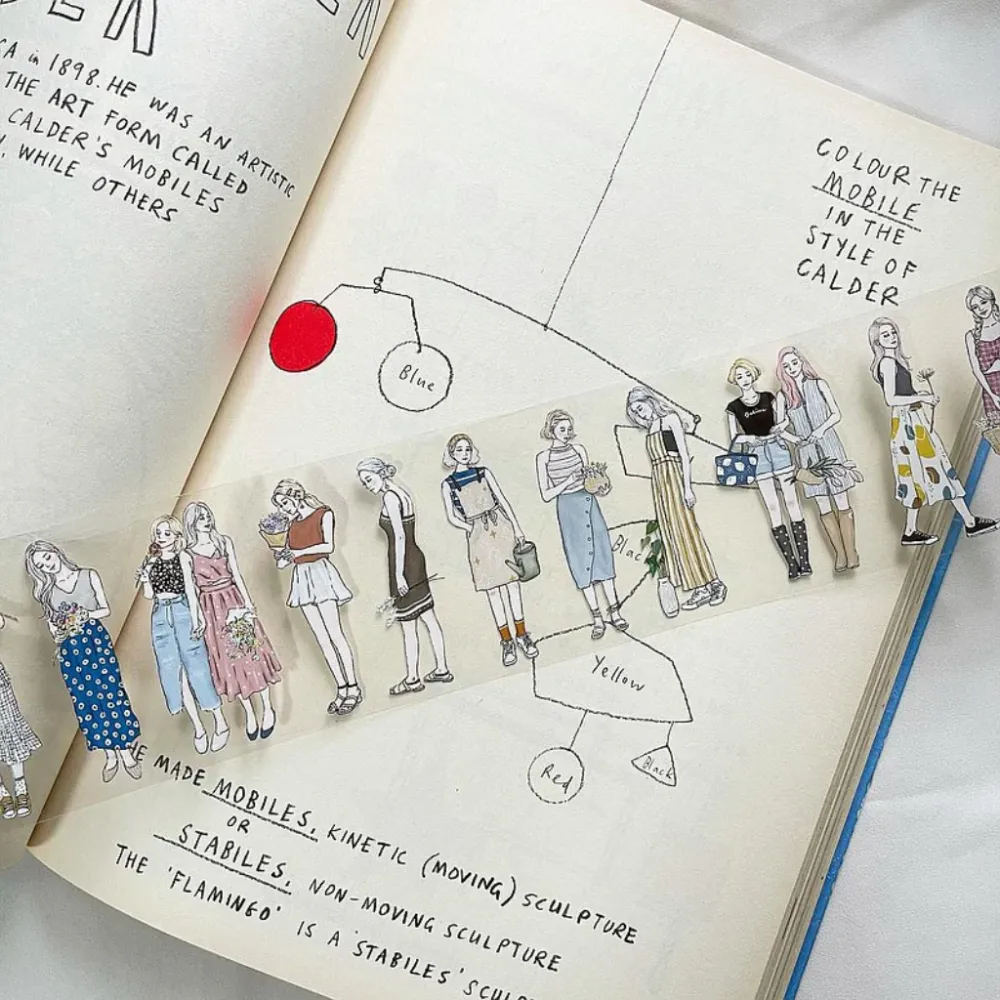 CA in 1898. HE WAS AN ARTISTIC
THE ART FORM CALLED
CALDER'S MOBILES
WHILE OTHERS
COLOUR THE
MOBILE
IN THE
STYLE OF
CALDER
Blue
Yellow
Red
Black
HE MADE MOBILES, KINETIC (MOVING) SCULPTURE
OR
STABILES, NON-MOVING SCULPTURE
THE 'FLAMINGO' IS A 'STABILES'